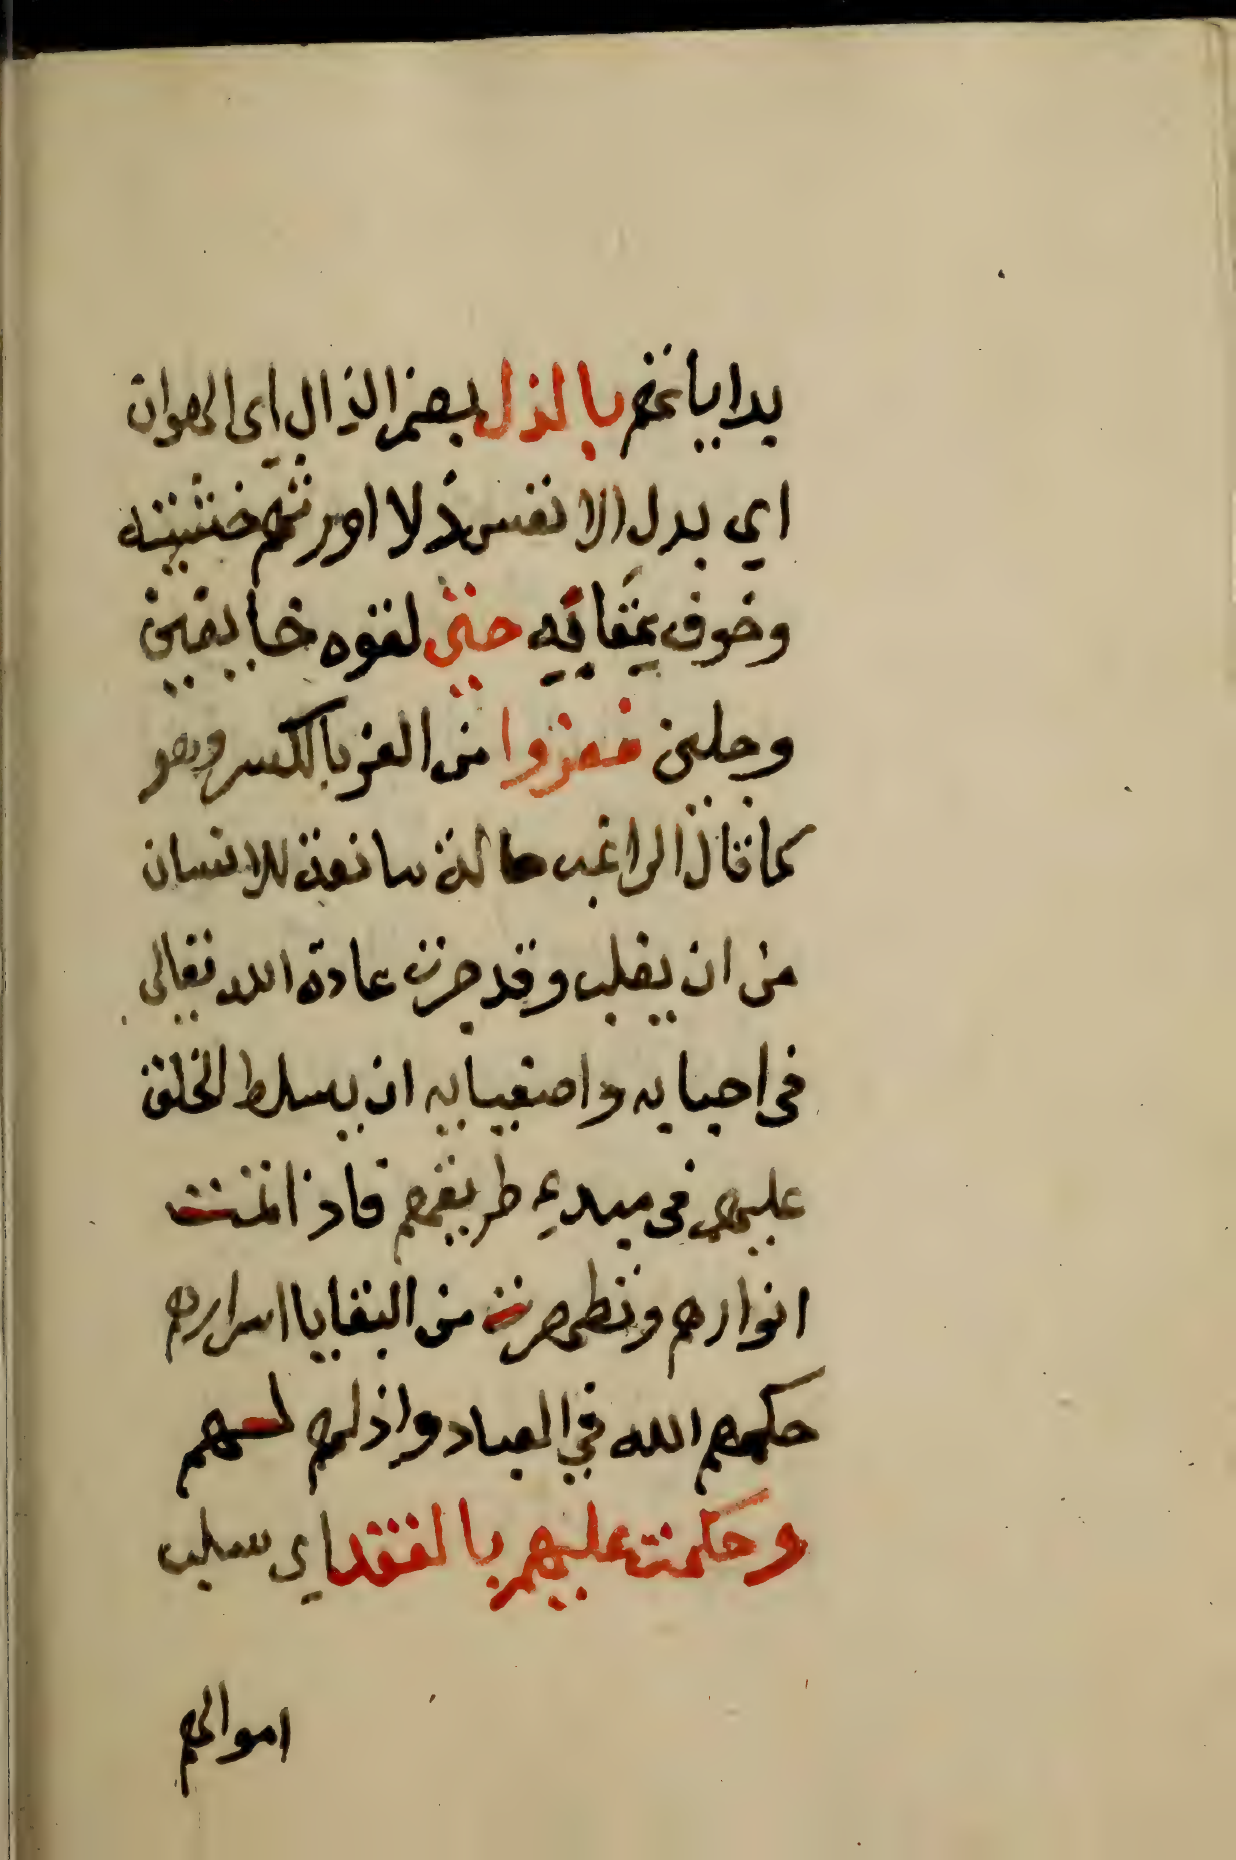 بداياتهم بالذل بضم الذال اي الهوان
اي بدل الانفس ذلا اورثهم خشيته
وخوف عقابه حتى لقوه خايفين
وجلين فعزوا من العز بالكسر وهو
كما قال الراغب حالة مانعة للانسان
من ان يغلب وقد جرت عادة الله تعالى
في احبايه واصفيايه ان يسلط الخلق
عليهم في مبدء طريقهم فاذا تمت
انوارهم وتطهرت من البقايا اسرارهم
حكمهم الله في العباد واذلهم لهم
وحكمت عليهم بالفقد اي سلب
اموالهم